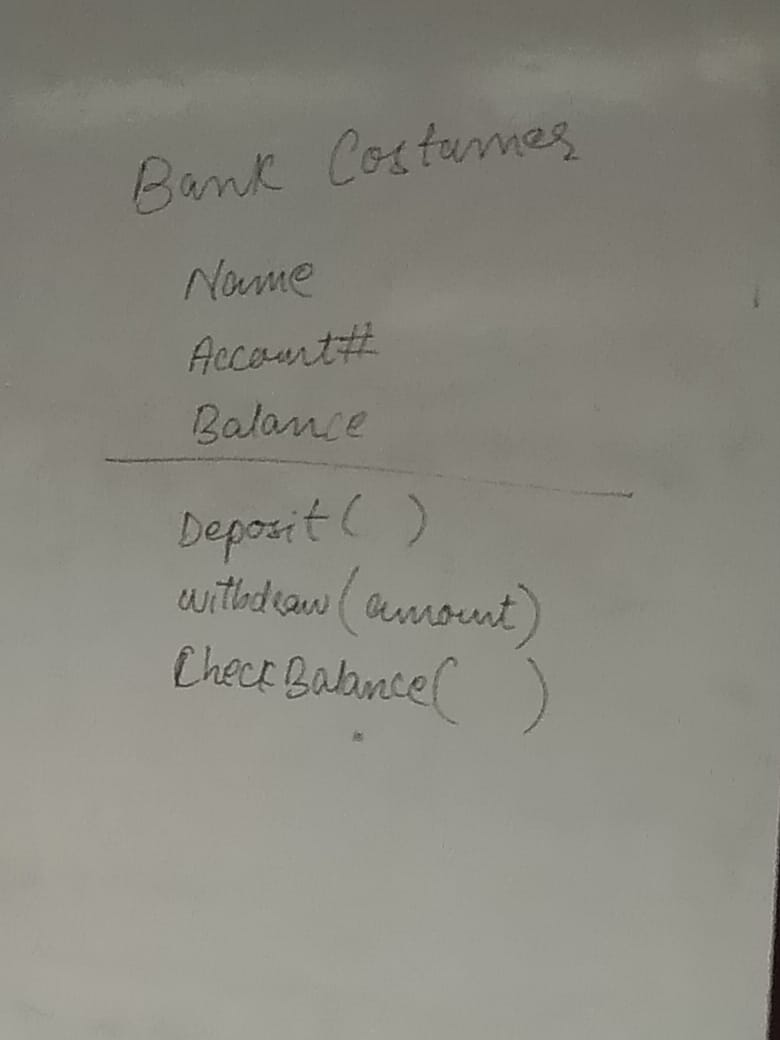 Bank Costumer
Name
Account#
Balance
Deposit( )
withdraw(amount)
CheckBalance( )